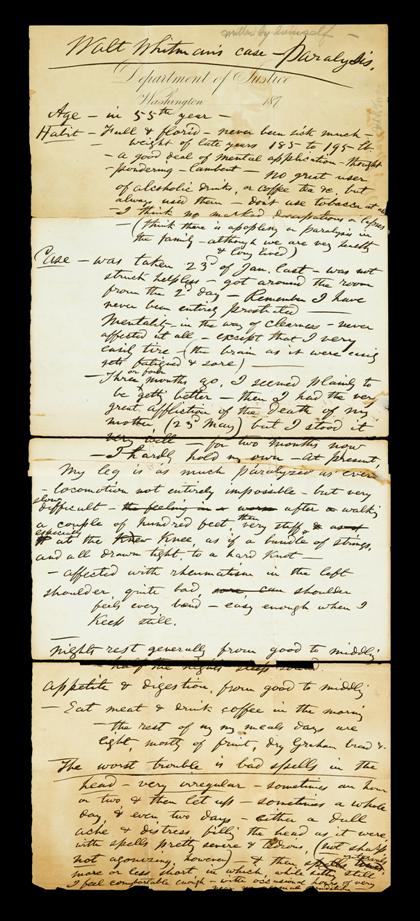 written by himself —
Walt Whitman's case — Paralysis.
Department of Justice
Washington 187
Age — in 55th year —
Habit — Full & florid — never been sick much —
— weight of late years 185 to 195 lb
— a good deal of mental application — thought
— pondering — — No great user
of alcoholic drinks, or coffee tea &c, but
always used them — don't use tobacco at all
— I think no marked or
— (think there is apoplexy or paralysis in
the family — although we are very
& long lived)
Case — was taken 23d of Jan. last — was not
struck helpless — got around the room
from the 2d day — Remember I have
never been entirely prostrated —
Mentality — in the way of clearness — never
affected at all — except that I very
easily tire — (the brain as it were
gets fatigued & sore) —
or four
— Three months ago, I seemed plainly to
be getting better — then I had the very
great affliction of the death of my
mother, (23d May) but I stood it
very well — for two months now
— I hardly hold my own — At present,
My leg is as much paralyzed as ever
— locomotion not entirely impossible — but very
slow &
difficult — the feeling in worse after walking
a couple of hundred feet, then very stiff, &
especially
at the knee, as if a bundle of strings,
and all drawn tight to a hard knot —
— affected with rheumatism in the left
shoulder, quite bad, shoulder
feels every bend — easy enough when I
keep still.
Nights rest generally from good to middling
— half the nights sleep sound.
Appetite & digestion, from good to middling
— Eat meat & drink coffee in the morning
— the rest of my meals days are
light, mostly of fruit, dry Graham bread &c
The worst trouble is bad spells in the
head — very irregular — sometimes an hour
or two & then let up — sometimes a whole
day, & even two days — either a dull
ache & distress, filling the head as it were,
with spells pretty severe & tedious, (not sharp
intervals
not agonizing, however) — & then
more or less short in which, while sitting still,
I feel comfortable enough — with occasional hours of very